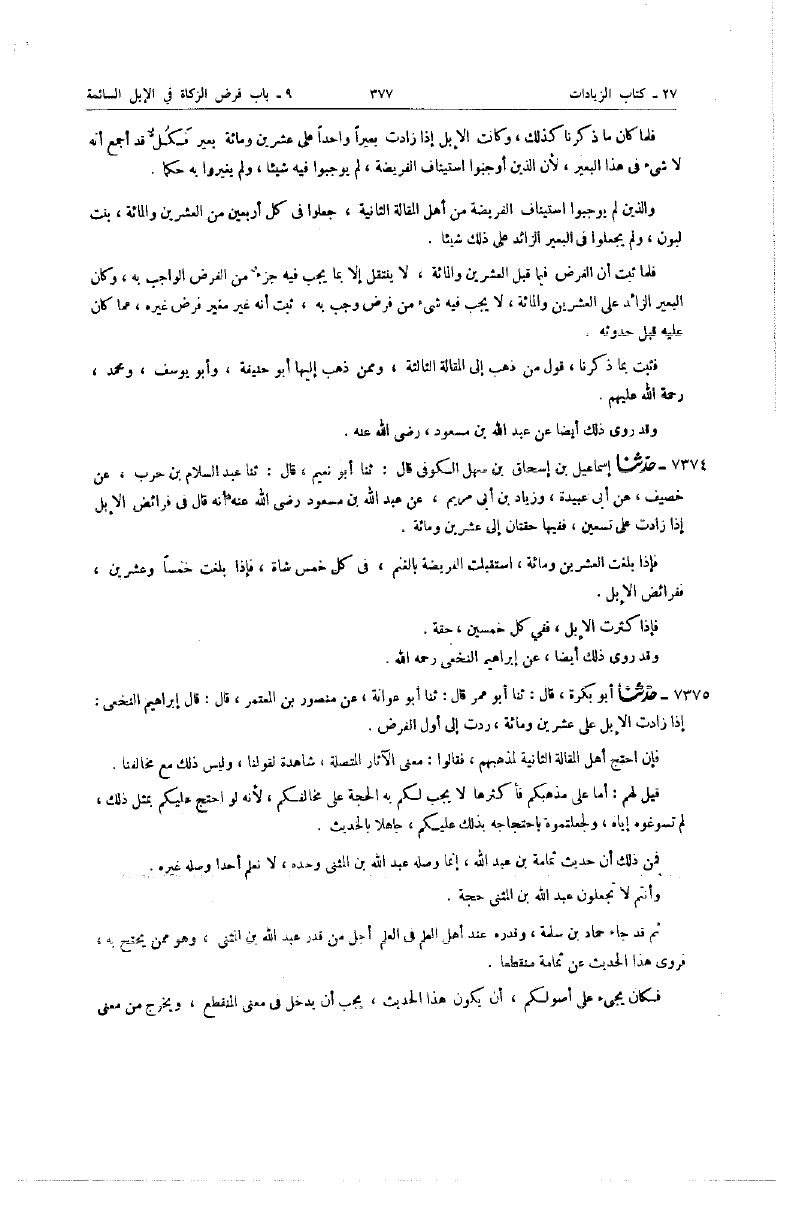 ٢٧ ـ كتاب الزيادات ٣٧٧ ٩ ـ باب فرض الزكاة في الإبل السائمة
فلما كان ما ذكرنا كذلك ، وكانت الإبل إذا زادت بعيراً واحداً على عشرين ومائة بعير فـكـكُلٌّ قد أجمع أنه
لا شىء فى هذا البعير ، لأن الذين أوجبوا استيناف الفريضة ، لم يوجبوا فيه شيئا ، ولم يغيروا به حكما .
والذين لم يوجبوا استيناف الفريضة من أهل المقالة الثانية ، جعلوا فى كل أربعين من العشرين والمائة ، بنت
لبون ، ولم يجعلوا فى البعير الزائد على ذلك شيئا .
فلما ثبت أن الفرض فيما قبل العشرين والمائة ، لا ينتقل إلا بما يجب فيه جزءٌ من الفرض الواجب به ، وكان
البعير الزائد على العشرين والمائة ، لا يجب فيه شىء من فرض وجب به ، ثبت أنه غير مغير فرض غيره ، عما كان
عليه قبل حدوثه .
فثبت بما ذكرنا ، قول من ذهب إلى المقالة الثالثة ، وممن ذهب إليها أبو حنيفة ، وأبو يوسف ، ومحمد ،
رحمة الله عليهم .
وقد روى ذلك أيضا عن عبد الله بن مسعود ، رضى الله عنه .
٧٣٧٤ ـ حدّثنا إسماعيل بن إسحاق بن سهل الكوفى قال : ثنا أبو نعيم ، قال : ثنا عبد السلام بن حرب ، عن
خصيف ، عن أبى عبيدة ، وزياد بن أبى مريم ، عن عبد الله بن مسعود رضى الله عنه أنه قال فى فرائض الإبل
إذا زادت على تسعين ، ففيها حقتان إلى عشرين ومائة .
فإذا بلغت العشرين ومائة ، استقبلت الفريضة بالغنم ، فى كل خمس شاة ، فإذا بلغت خمساً وعشرين ،
ففرائض الإبل .
فإذا كثرت الإبل ، ففي كل خمسين ، حقة .
وقد روى ذلك أيضا ، عن إبراهيم النخعى رحمه الله .
٧٣٧٥ ـ حدّثنا أبو بكرة ، قال : ثنا أبو عمر قال : ثنا أبو عوانة ، عن منصور بن المعتمر ، قال : قال إبراهيم النخعى :
إذا زادت الإبل على عشرين ومائة ، ردت إلى أول الفرض .
فإن احتج أهل المقالة الثانية لمذهبهم ، فقالوا : معنى الآثار المتصلة ، شاهدة لقولنا ، وليس ذلك مع مخالفنا .
قيل لهم : أما على مذهبكم فأكثرها لا يجب لكم به الحجة على مخالفكم ، لأنه لو احتج عليكم بمثل ذلك ،
لم تسوغوه إياه ، ولجعلتموه باحتجاجه بذلك عليكم ، جاهلا بالحديث .
فمن ذلك أن حديث ثمامة بن عبد الله ، إنما وصله عبد الله بن المثنى وحده ، لا نعلم أحدا وصله غيره .
وأنتم لا تجعلون عبد الله بن المثنى حجة .
ثم قد جاء حماد بن سلمة ، وقدره عند أهل العلم فى العلم أجل من قدر عبد الله بن المثنى ، وهو ممن يحتج به ،
فروى هذا الحديث عن ثمامة منقطعا .
فكان يجىء على أصولكم ، أن يكون هذا الحديث ، يجب أن يدخل فى معنى المنقطع ، ويخرج من معنى